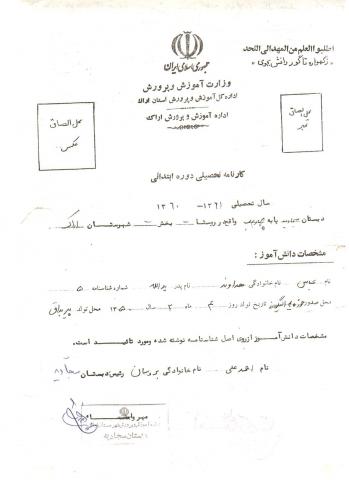 اطلبوا العلم من المهد الی اللحد
« ز گهواره تا گور دانش بجوی »
جمهوری اسلامی ایران
وزارت آموزش و پرورش
اداره کل آموزش و پرورش استان اراک
اداره آموزش و پرورش اراک
محل الصاق
عکس
محل الصاق
تمبر
کارنامه تحصیلی دوره ابتدائی
سال تحصیلی ۱۳۶۱ - ۱۳۶۰
دبستان پایه واقع در روستا - بخش - شهرستان اراک
مشخصات دانش آموز :
نام عباس نام خانوادگی نام پدر یداله شماره شناسنامه ۵
محل صدور تاریخ تولد روز ماه ۲ سال ۱۳۵۰ محل تولد
مشخصات دانش آموز از روی اصل شناسنامه نوشته شده و مورد تائید است.
نام احمد علی نام خانوادگی رئیس دبستان سجادیه
مهر و امضاء
دبستان سجادیه